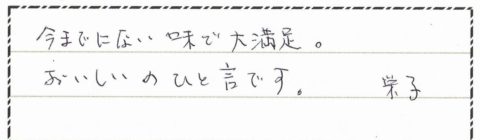 今までにない味で大満足。
おいしいのひと言です。 栄子